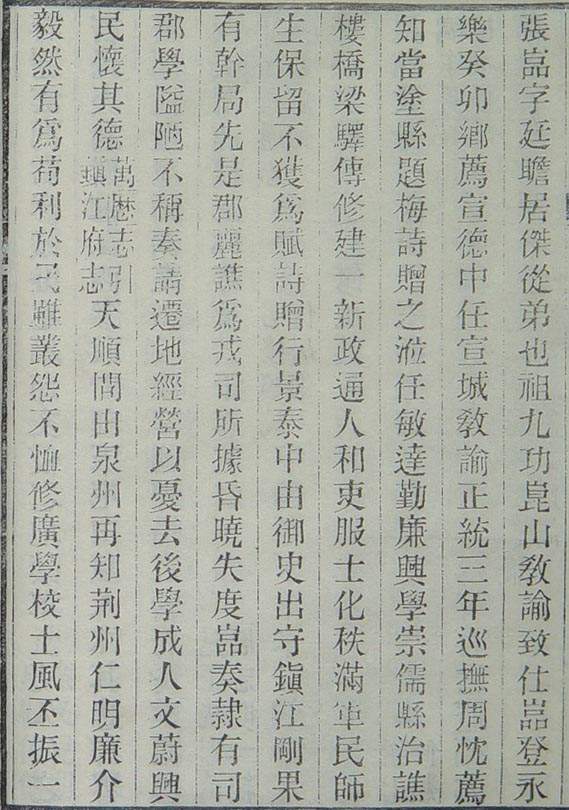 張嵓字延瞻居傑從弟也祖九功崑山敎諭致仕嵓登永
樂癸卯鄉薦宣德中任宣城敎諭正統三年巡撫周忱薦
知當塗縣題梅詩贈之涖任敏達勤廉興學崇儒縣治譙
樓橋梁驛傳修建一新政通人和吏服士化秩滿軍民師
生保留不獲爲賦詩贈行景泰中由御史出守鎭江剛果
有幹局先是郡麗譙爲戎司所據昏曉失度嵓奏隷有司
郡學隘陋不稱奏請遷地經營以憂去後學成人文蔚興
民懷其德萬歷志引鎭江府志天順間由泉州再知荆州仁明廉介
毅然有爲苟利於民雖叢怨不恤修廣學校士風丕振一